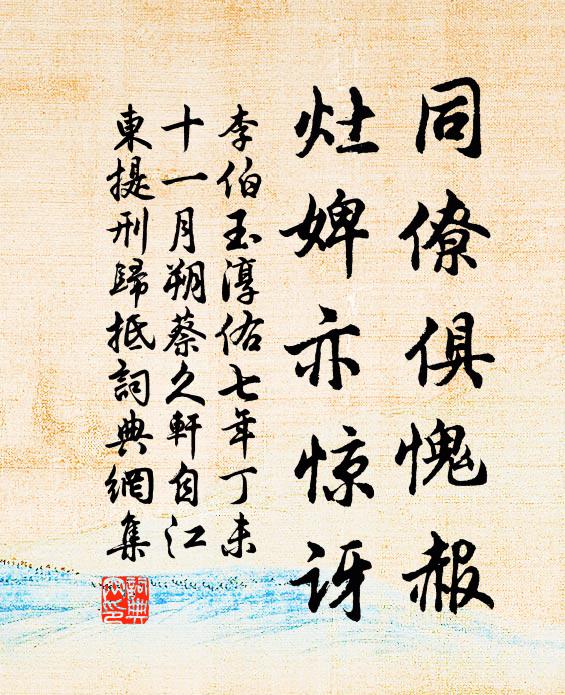 同僚俱愧赧
灶婢亦惊讶
李伯玉淳佑七年丁未
十一月朔蔡久軒自江
東提刑歸抵詞典網集